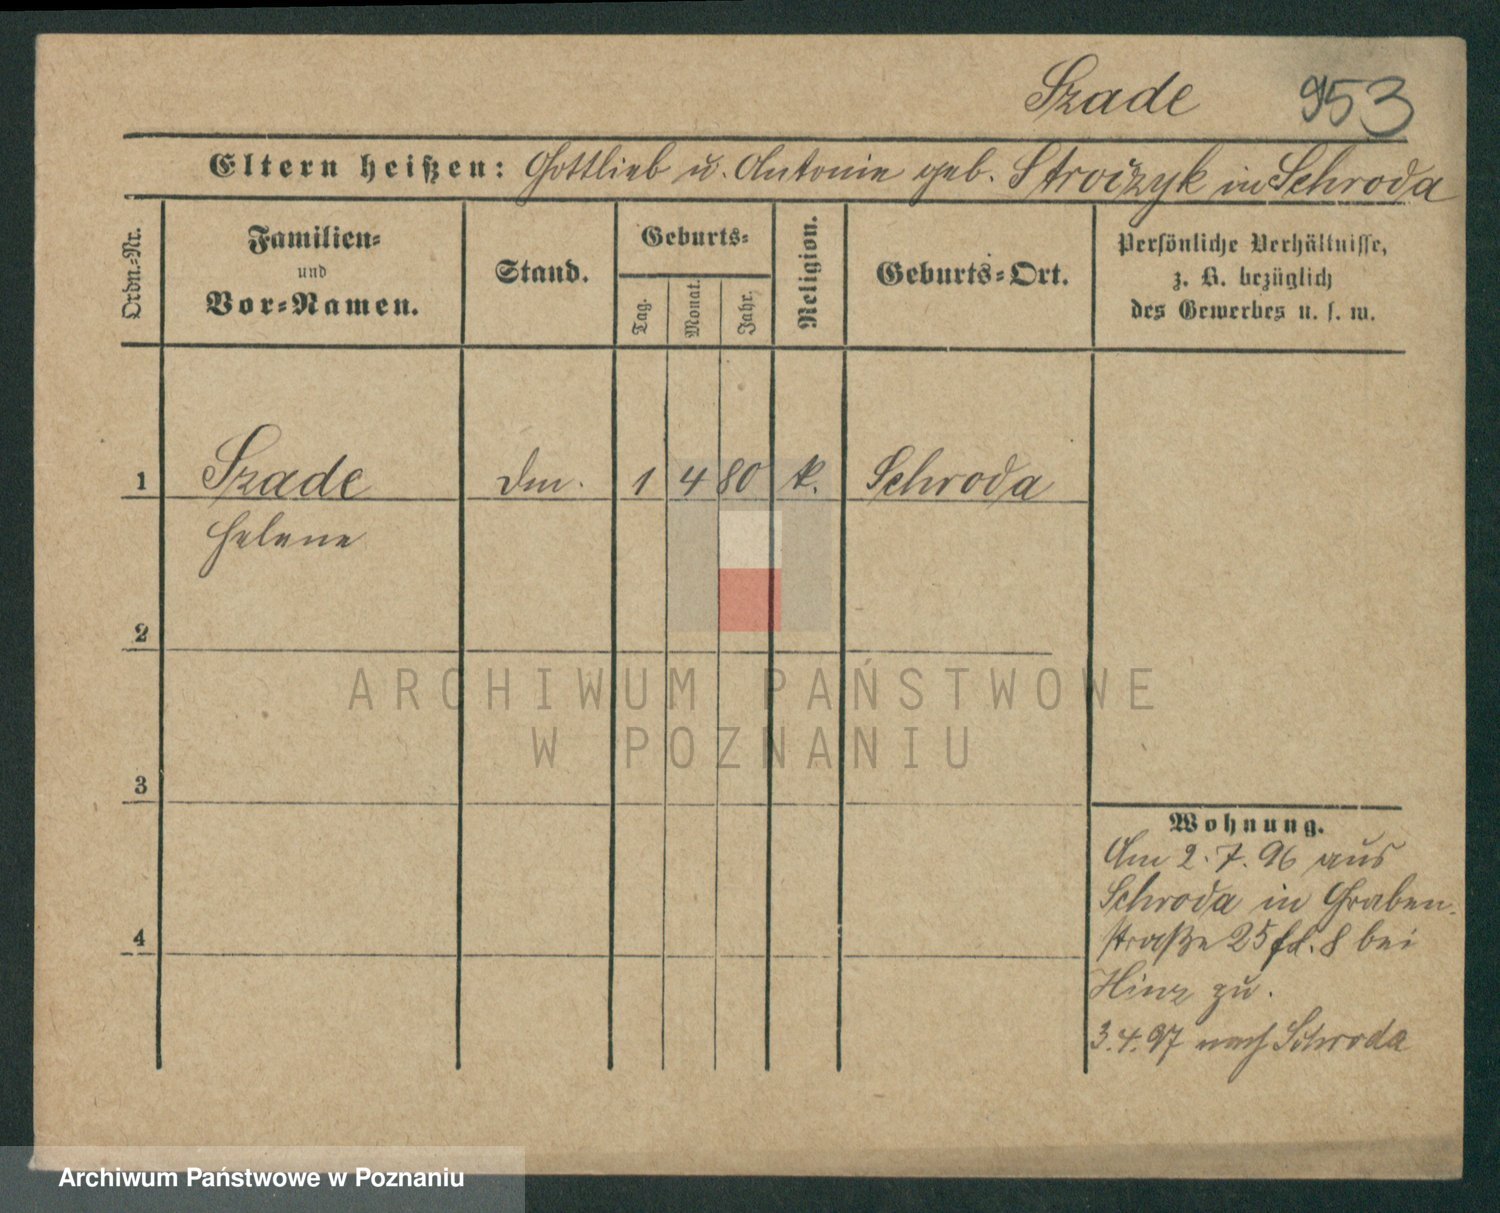 Szade 953
Eltern heißen: Gottlieb u. Antonie geb. Stroiżyk in Schroda
Ordn.-Nr.
Familien-
und
Vor-Namen.
Stand.
Geburts-
Tag.
Monat.
Jahr.
Religion.
Geburts-Ort.
Persönliche Verhältnisse,
z. B. bezüglich
des Gewerbes u. s. w.
1 Szade Dm. 1 4 80 k. Schroda
Helene
2
3
4
Wohnung.
Am 2.7.96 aus
Schroda in Graben-
straße 25 fd. 8 bei
Hinz zu.
3.4.97 nach Schroda
ARCHIWUM PAŃSTWOWE
W POZNANIU
Archiwum Państwowe w Poznaniu